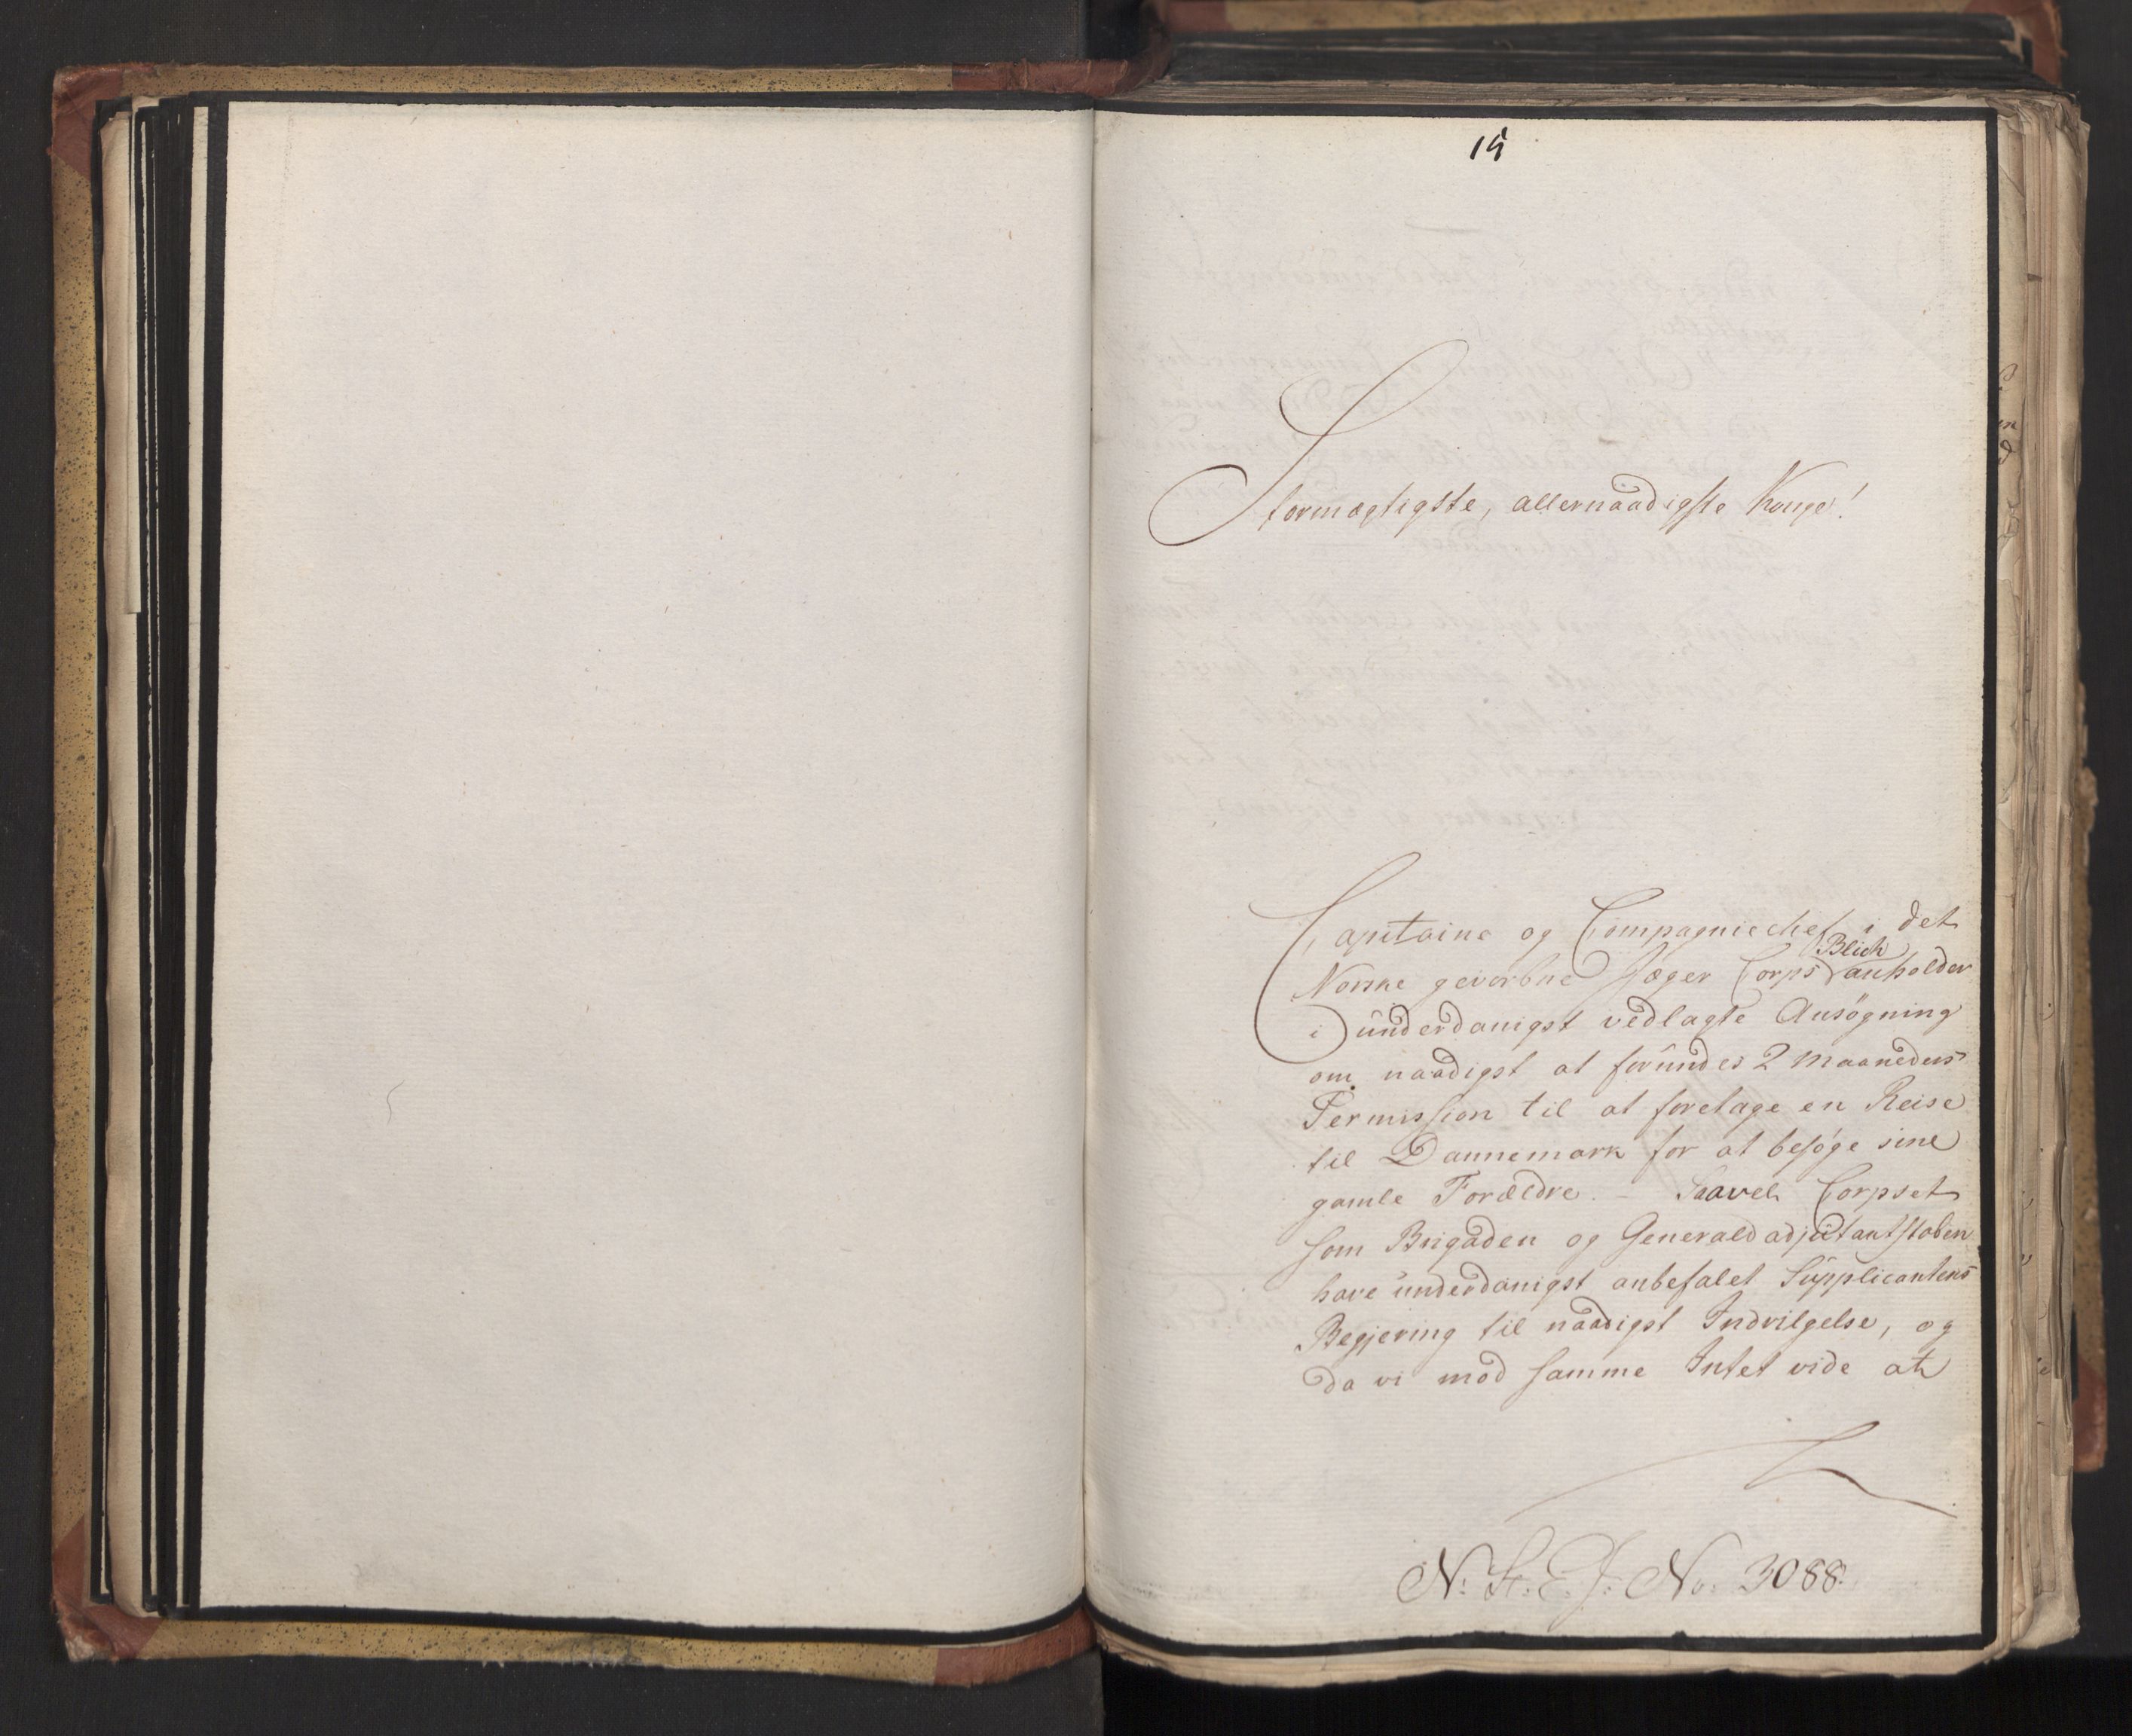 15
Stormægtigste, allernaadigste Konge!
Capitaine og Compagniechef i det
Norske gevorbne Jæger Corps Blich anholder
i underdanigst vedlagte Ansøgning
om naadigst at forundes 2 Maaneders
Permission til at foretage en Reise
til Dannemark for at besøge sine
gamle Forældre. - Saavel Corpset
som Brigaden og Generaladjutantstaben
have underdanigst anbefalet Supplicantens
Begjering til naadigst Indvilgelse, og
da vi mod samme Intet vide at
N: St: E. J: No. 3088.